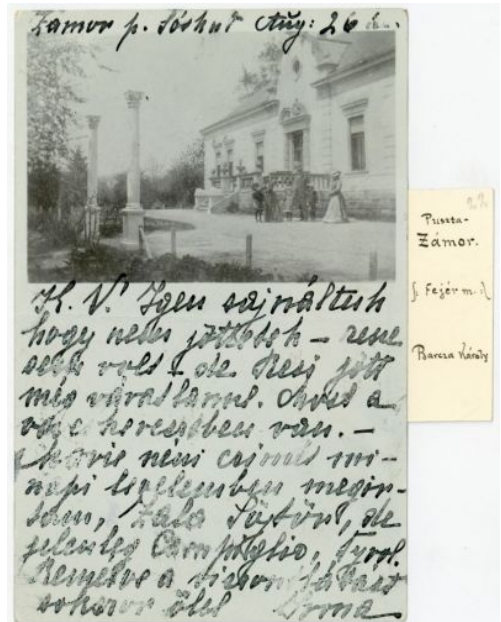 Zámor p. Sóskút Aug: 26 án.
K. V! Igen sajnáltuk
hogy nem jöttetek – zene
sem volt – de Resi jött
még váratlanul. Most a
van. –
néni
napi levelemben megír-
tam, Zala Söjtör, de
jelenleg Campiglio, Tyrol.
Remélve a viszontlátást
sokszor ölel Irma
22
Puszta-
Zámor.
(Fejér m.)
Barcza Károly